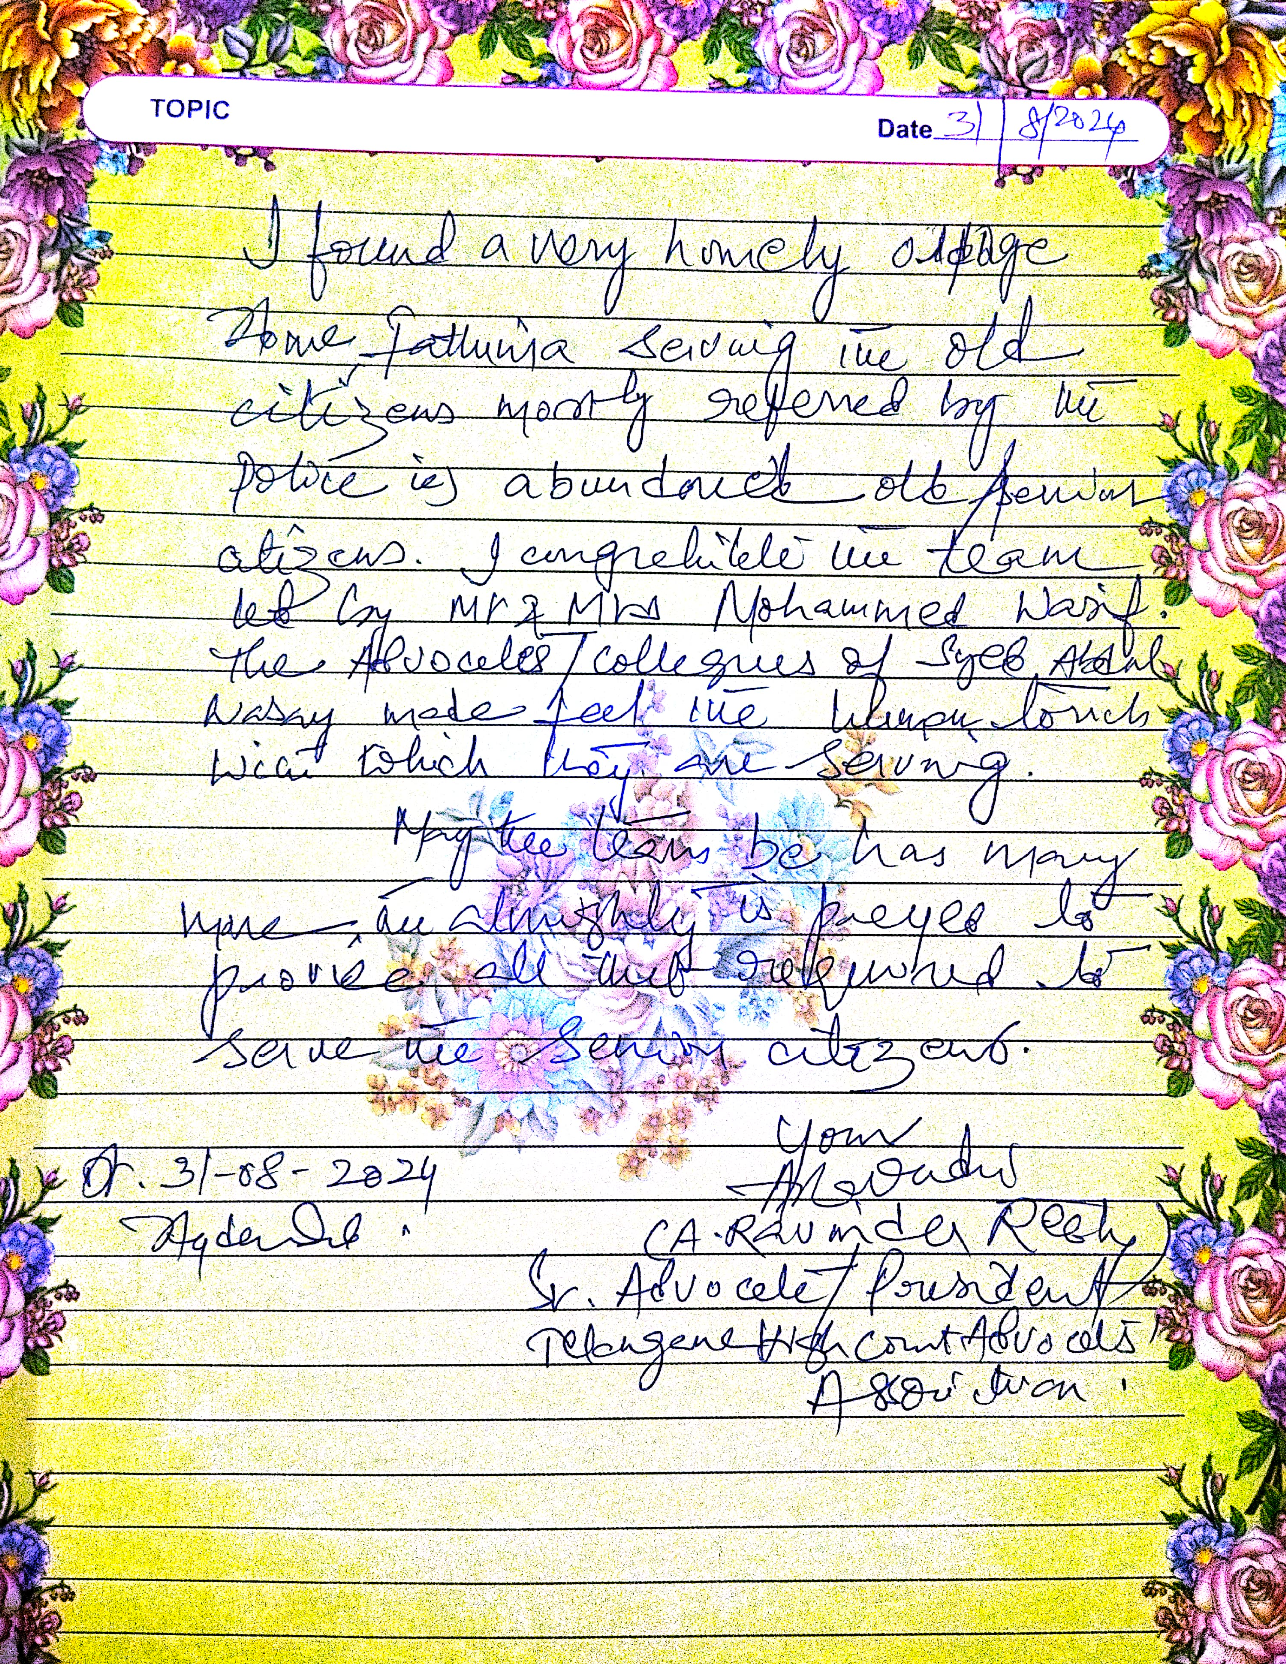 TOPIC
Date 31/8/2024
I found a very homely oldage
Home, Fathima serving the old
citizens mostly referred by the
police ie, abundoned old senior
citizens. I congretulete the team
led by Mr & Mrs Mohammed Wasif.
The Advocates/collegues of Syed Abdul
Wasay made feel the human touch
with which they are serving.
May the team be has many
more, the almighty is preyed to
provide all that required to
serve the senior citizens.
Your
Dt. 31-08-2024
Hyderabad.
(A. Ravinder Reddy)
Sr. Advocate/President
Telangana High Court Advocates
Association.